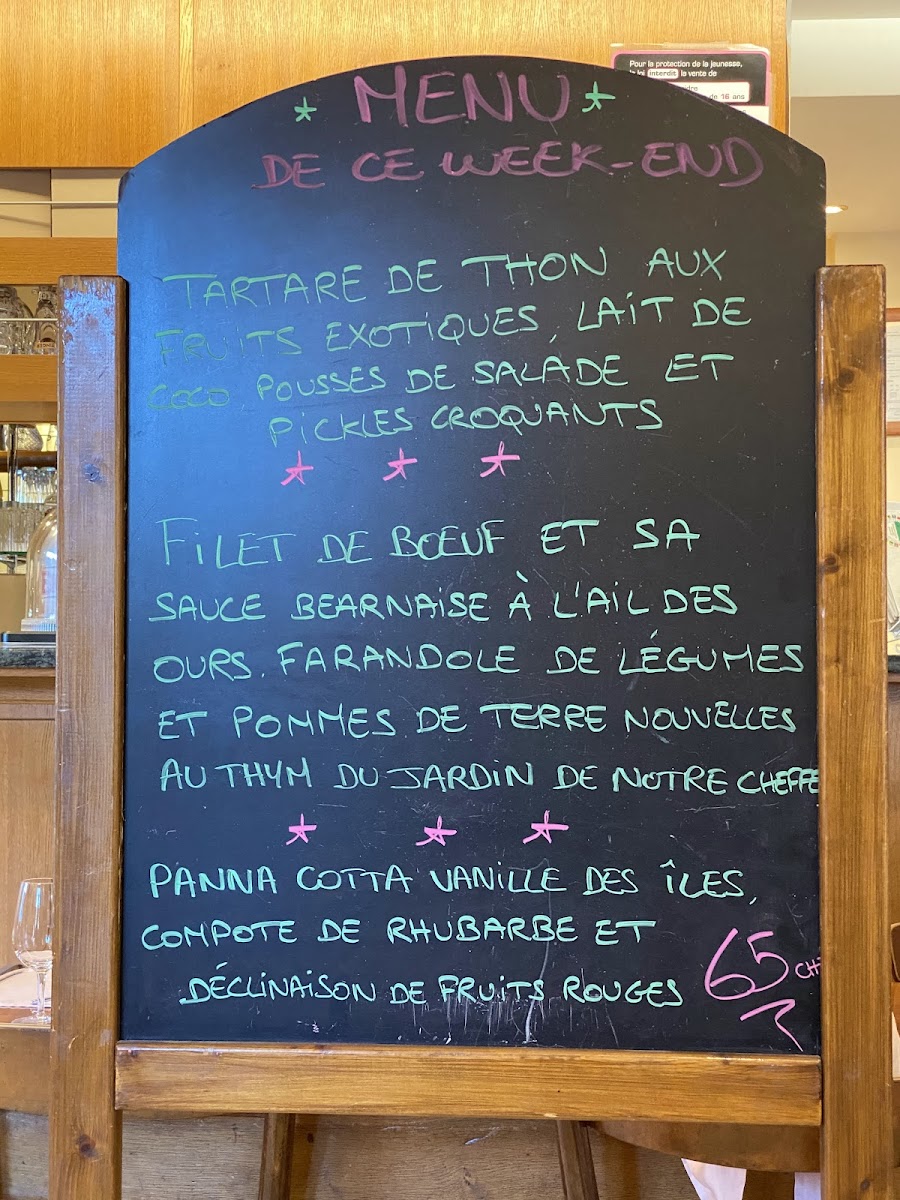 Pour la protection de la jeunesse,
la loi interdit la vente de
de 16 ans
MENU
DE CE WEEK-END
TARTARE DE THON AUX
FRUITS EXOTIQUES, LAIT DE
COCO POUSSES DE SALADE ET
PICKLES CROQUANTS
FILET DE BŒUF ET SA
SAUCE BEARNAISE À L'AIL DES
OURS. FARANDOLE DE LÉGUMES
ET POMMES DE TERRE NOUVELLES
AU THYM DU JARDIN DE NOTRE CHEFFE
PANNA COTTA VANILLE DES ÎLES,
COMPOTE DE RHUBARBE ET
DÉCLINAISON DE FRUITS ROUGES
65